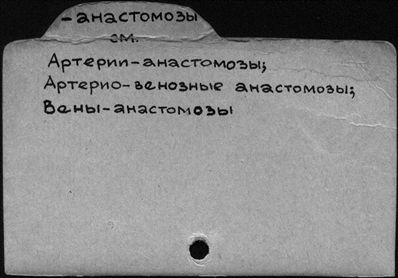 -анастомозы
см.
Артерии-анастомозы;
Артерио-венозные анастомозы;
Вены-анастомозы